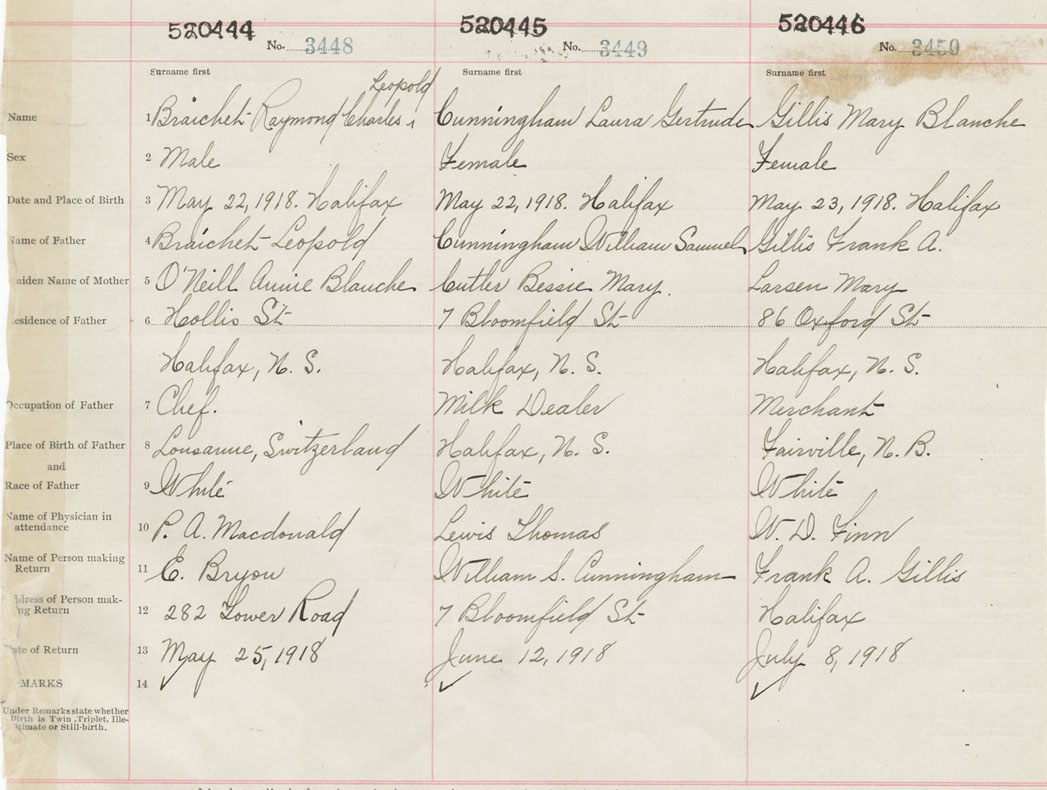 520444 520445 520446
No. 3448 No. 3449 No. 3450
Surname first Surname first Surname first
Leopold
Name 1 Braichet Raymond Charles Cunningham Laura Gertrude Gillis Mary Blanche
Sex 2 Male Female Female
Date and Place of Birth 3 May 22, 1918. Halifax May 22, 1918. Halifax May 23, 1918. Halifax
Name of Father 4 Braichet Leopold Cunningham William Samuel Gillis Frank A.
aiden Name of Mother 5 O'Neill Annie Blanche Cutler Bessie Mary. Larsen Mary
esidence of Father 6 Hollis St 7 Bloomfield St 86 Oxford St
Halifax, N. S. Halifax, N. S. Halifax, N. S.
Occupation of Father 7 Chef. Milk Dealer Merchant
Place of Birth of Father 8 Lousanne, Switzerland Halifax, N. S. Fairville, N. B.
and
Race of Father 9 White White White
Name of Physician in
attendance 10 P. A. Macdonald Lewis Thomas W. D. Finn
Name of Person making
Return 11 E. Bryon William S. Cunningham Frank A. Gillis
dress of Person mak-
ng Return 12 282 Tower Road 7 Bloomfield St Halifax
ate of Return 13 May 25, 1918 June 12, 1918 July 8, 1918
MARKS 14 ✓ ✓ ✓
Under Remarks state whether
Birth is Twin, Triplet, Ille-
gitimate or Still-birth.